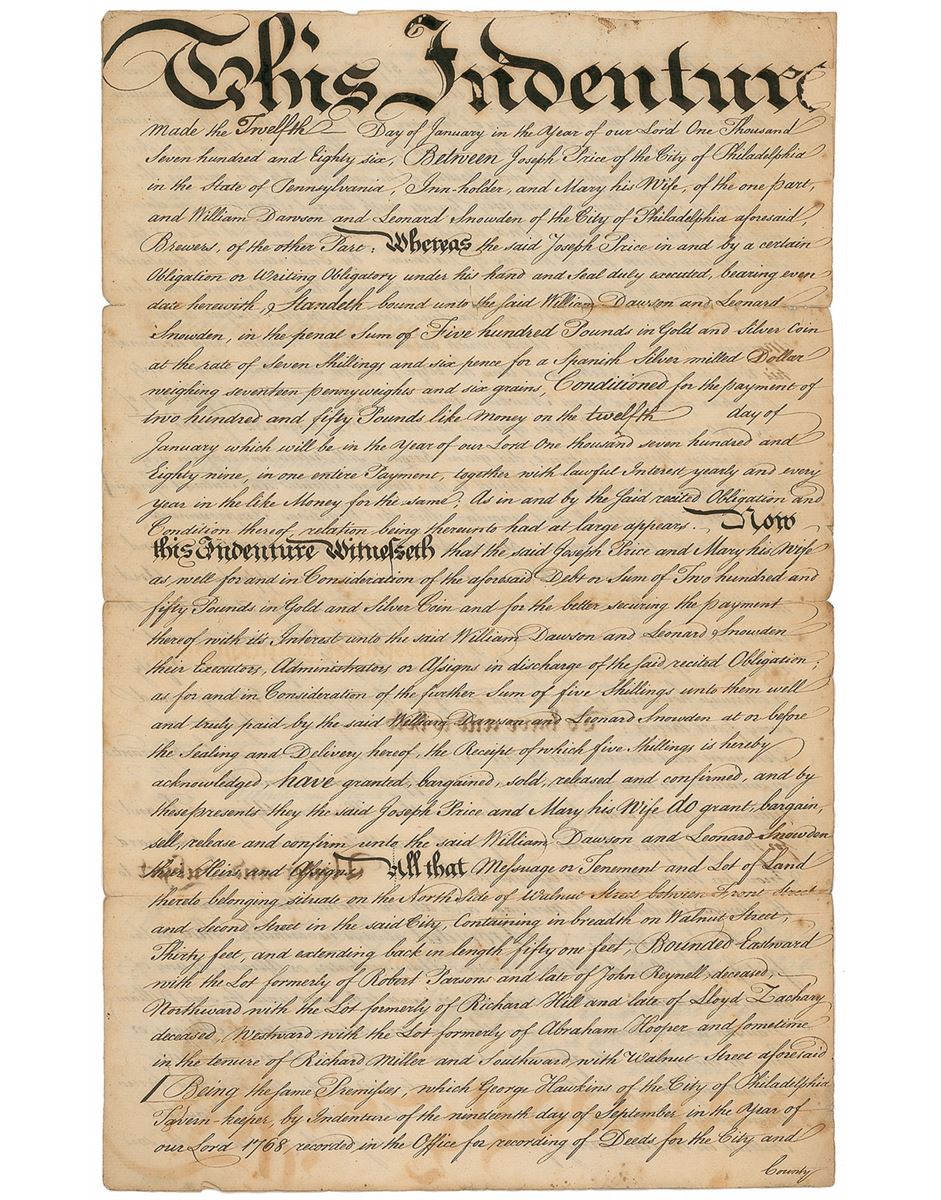 This Indenture
made the Twelfth Day of January in the Year of our Lord One Thousand
Seven hundred and Eighty six, Between Joseph Price of the City of Philadelphia
in the State of Pennsylvania, Inn-holder, and Mary his Wife, of the one part,
and William Dawson and Leonard Snowden of the City of Philadelphia aforesaid,
Brewers, of the other Part: Whereas the said Joseph Price in and by a certain
Obligation or Writing Obligatory under his hand and Seal duly executed, bearing even
date herewith, Standeth bound unto the said William Dawson and Leonard
Snowden, in the penal Sum of Five hundred Pounds in Gold and Silver Coin
at the rate of Seven Shillings and six pence for a Spanish Silver milled Dollar
weighing seventeen pennyweights and six grains, Conditioned for the payment of
two hundred and fifty Pounds like Money on the twelfth day of
January which will be in the Year of our Lord One thousand seven hundred and
Eighty nine, in one entire Payment, together with lawful Interest yearly and every
year in the like Money for the same. As in and by the said recited Obligation and
Condition thereof, relation being thereunto had at large appears. Now
this Indenture Witnesseth that the said Joseph Price and Mary his Wife
as well for and in Consideration of the aforesaid Debt or Sum of Two hundred and
fifty Pounds in Gold and Silver Coin and for the better securing the payment
thereof with its Interest unto the said William Dawson and Leonard Snowden
their Executors, Administrators or Assigns in discharge of the said recited Obligation;
as for and in Consideration of the further Sum of five Shillings unto them well
and truly paid by the said William Dawson and Leonard Snowden at or before
the Sealing and Delivery hereof, the Receipt of which five Shillings is hereby
acknowledged, have granted, bargained, sold, released and confirmed, and by
these presents they the said Joseph Price and Mary his Wife do grant, bargain,
sell, release and confirm unto the said William Dawson and Leonard Snowden
their Heirs and Assigns All that Messuage or Tenement and Lot of Land
thereto belonging situate on the North side of Walnut Street between Front Street
and Second Street in the said City, Containing in breadth on Walnut Street,
Thirty feet, and extending back in length fifty one feet, Bounded Eastward
with the Lot formerly of Robert Parsons and late of John Reynell, deceased,
Northward with the Lot formerly of Richard Hill and late of Lloyd Zachary
deceased, Westward with the Lot formerly of Abraham Hooper and sometime
in the tenure of Richard Miller and Southward, with Walnut Street aforesaid
Being the same Premises, which George Hawkins of the City of Philadelphia
Tavern-keeper, by Indenture of the nineteenth day of September in the Year of
our Lord 1768, recorded in the Office for recording of Deeds for the City and
County